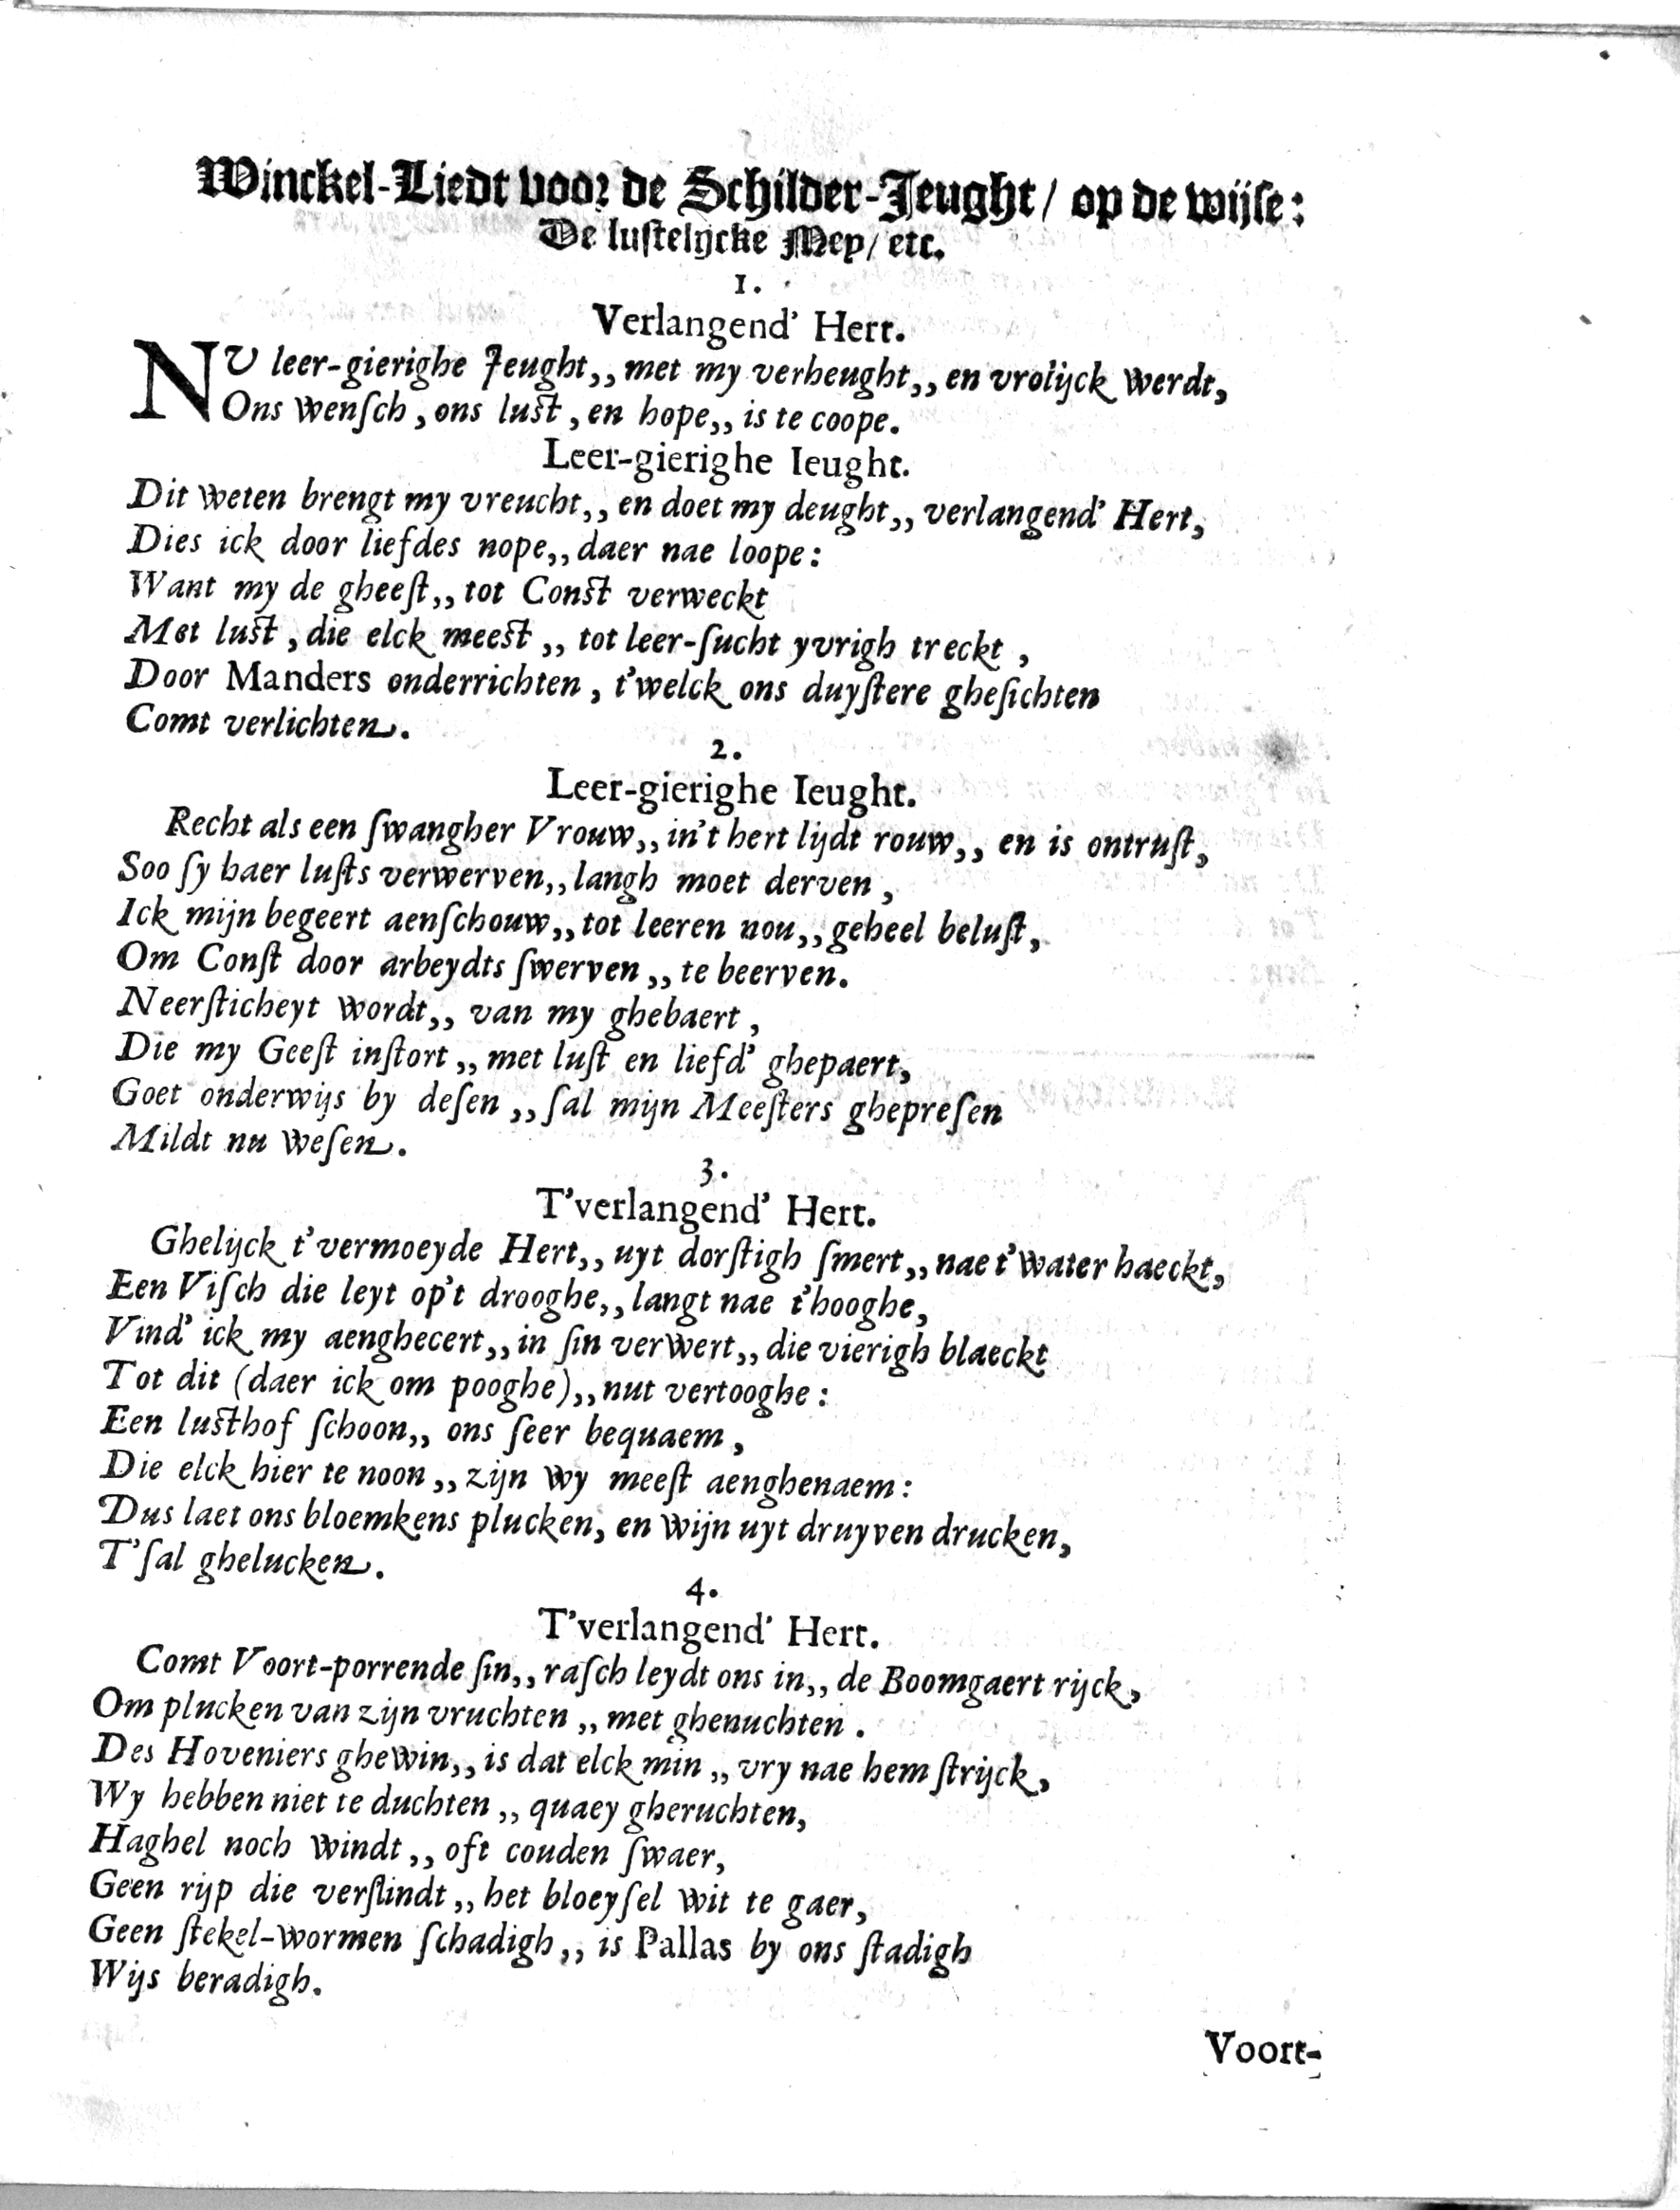 Winckel-Liedt voor de Schilder-Jeught/ op de wijſe:
De luſtelijcke Mey/ etc.
1.
Verlangend' Hert.
NV leer-gierighe Jeught,, met my verheught,, en vrolijck werdt,
Ons wenſch, ons luſt, en hope,, is te coope.
Leer-gierighe Ieught.
Dit weten brengt my vreucht,, en doet my deught,, verlangend' Hert,
Dies ick door liefdes nope,, daer nae loope:
Want my de gheeſt,, tot Conſt verweckt
Met luſt, die elck meeſt,, tot leer-ſucht yvrigh treckt,
Door Manders onderrichten, t'welck ons duyſtere gheſichten
Comt verlichten.
2.
Leer-gierighe Ieught.
Recht als een ſwangher Vrouw,, in't hert lijdt rouw,, en is ontruſt,
Soo ſy haer luſts verwerven,, langh moet derven,
Ick mijn begeert aenſchouw,, tot leeren nou,, geheel beluſt,
Om Conſt door arbeydts ſwerven,, te beerven.
Neerſticheyt wordt,, van my ghebaert,
Die my Geeſt inſtort,, met luſt en liefd' ghepaert,
Goet onderwijs by deſen,, ſal mijn Meeſters ghepreſen
Mildt nu weſen.
3.
T'verlangend' Hert.
Ghelijck t'vermoeyde Hert,, uyt dorſtigh ſmert,, nae t'water haeckt,
Een Viſch die leyt op't drooghe,, langt nae t'hooghe,
Vind' ick my aenghecert,, in ſin verwert,, die vierigh blaeckt
Tot dit (daer ick om pooghe),, nut vertooghe:
Een luſthof ſchoon,, ons ſeer bequaem,
Die elck hier te noon,, zijn wy meeſt aenghenaem:
Dus laet ons bloemkens plucken, en wijn uyt druyven drucken,
T'ſal ghelucken.
4.
T'verlangend' Hert.
Comt Voort-porrende ſin,, raſch leydt ons in,, de Boomgaert rijck,
Om plucken van zijn vruchten,, met ghenuchten.
Des Hoveniers ghewin,, is dat elck min,, vry nae hem ſtrijck,
Wy hebben niet te duchten,, quaey gheruchten,
Haghel noch windt,, oft couden ſwaer,
Geen rijp die verſlindt,, het bloeyſel wit te gaer,
Geen ſtekel-wormen ſchadigh,, is Pallas by ons ſtadigh
Wijs beradigh.
Voort-